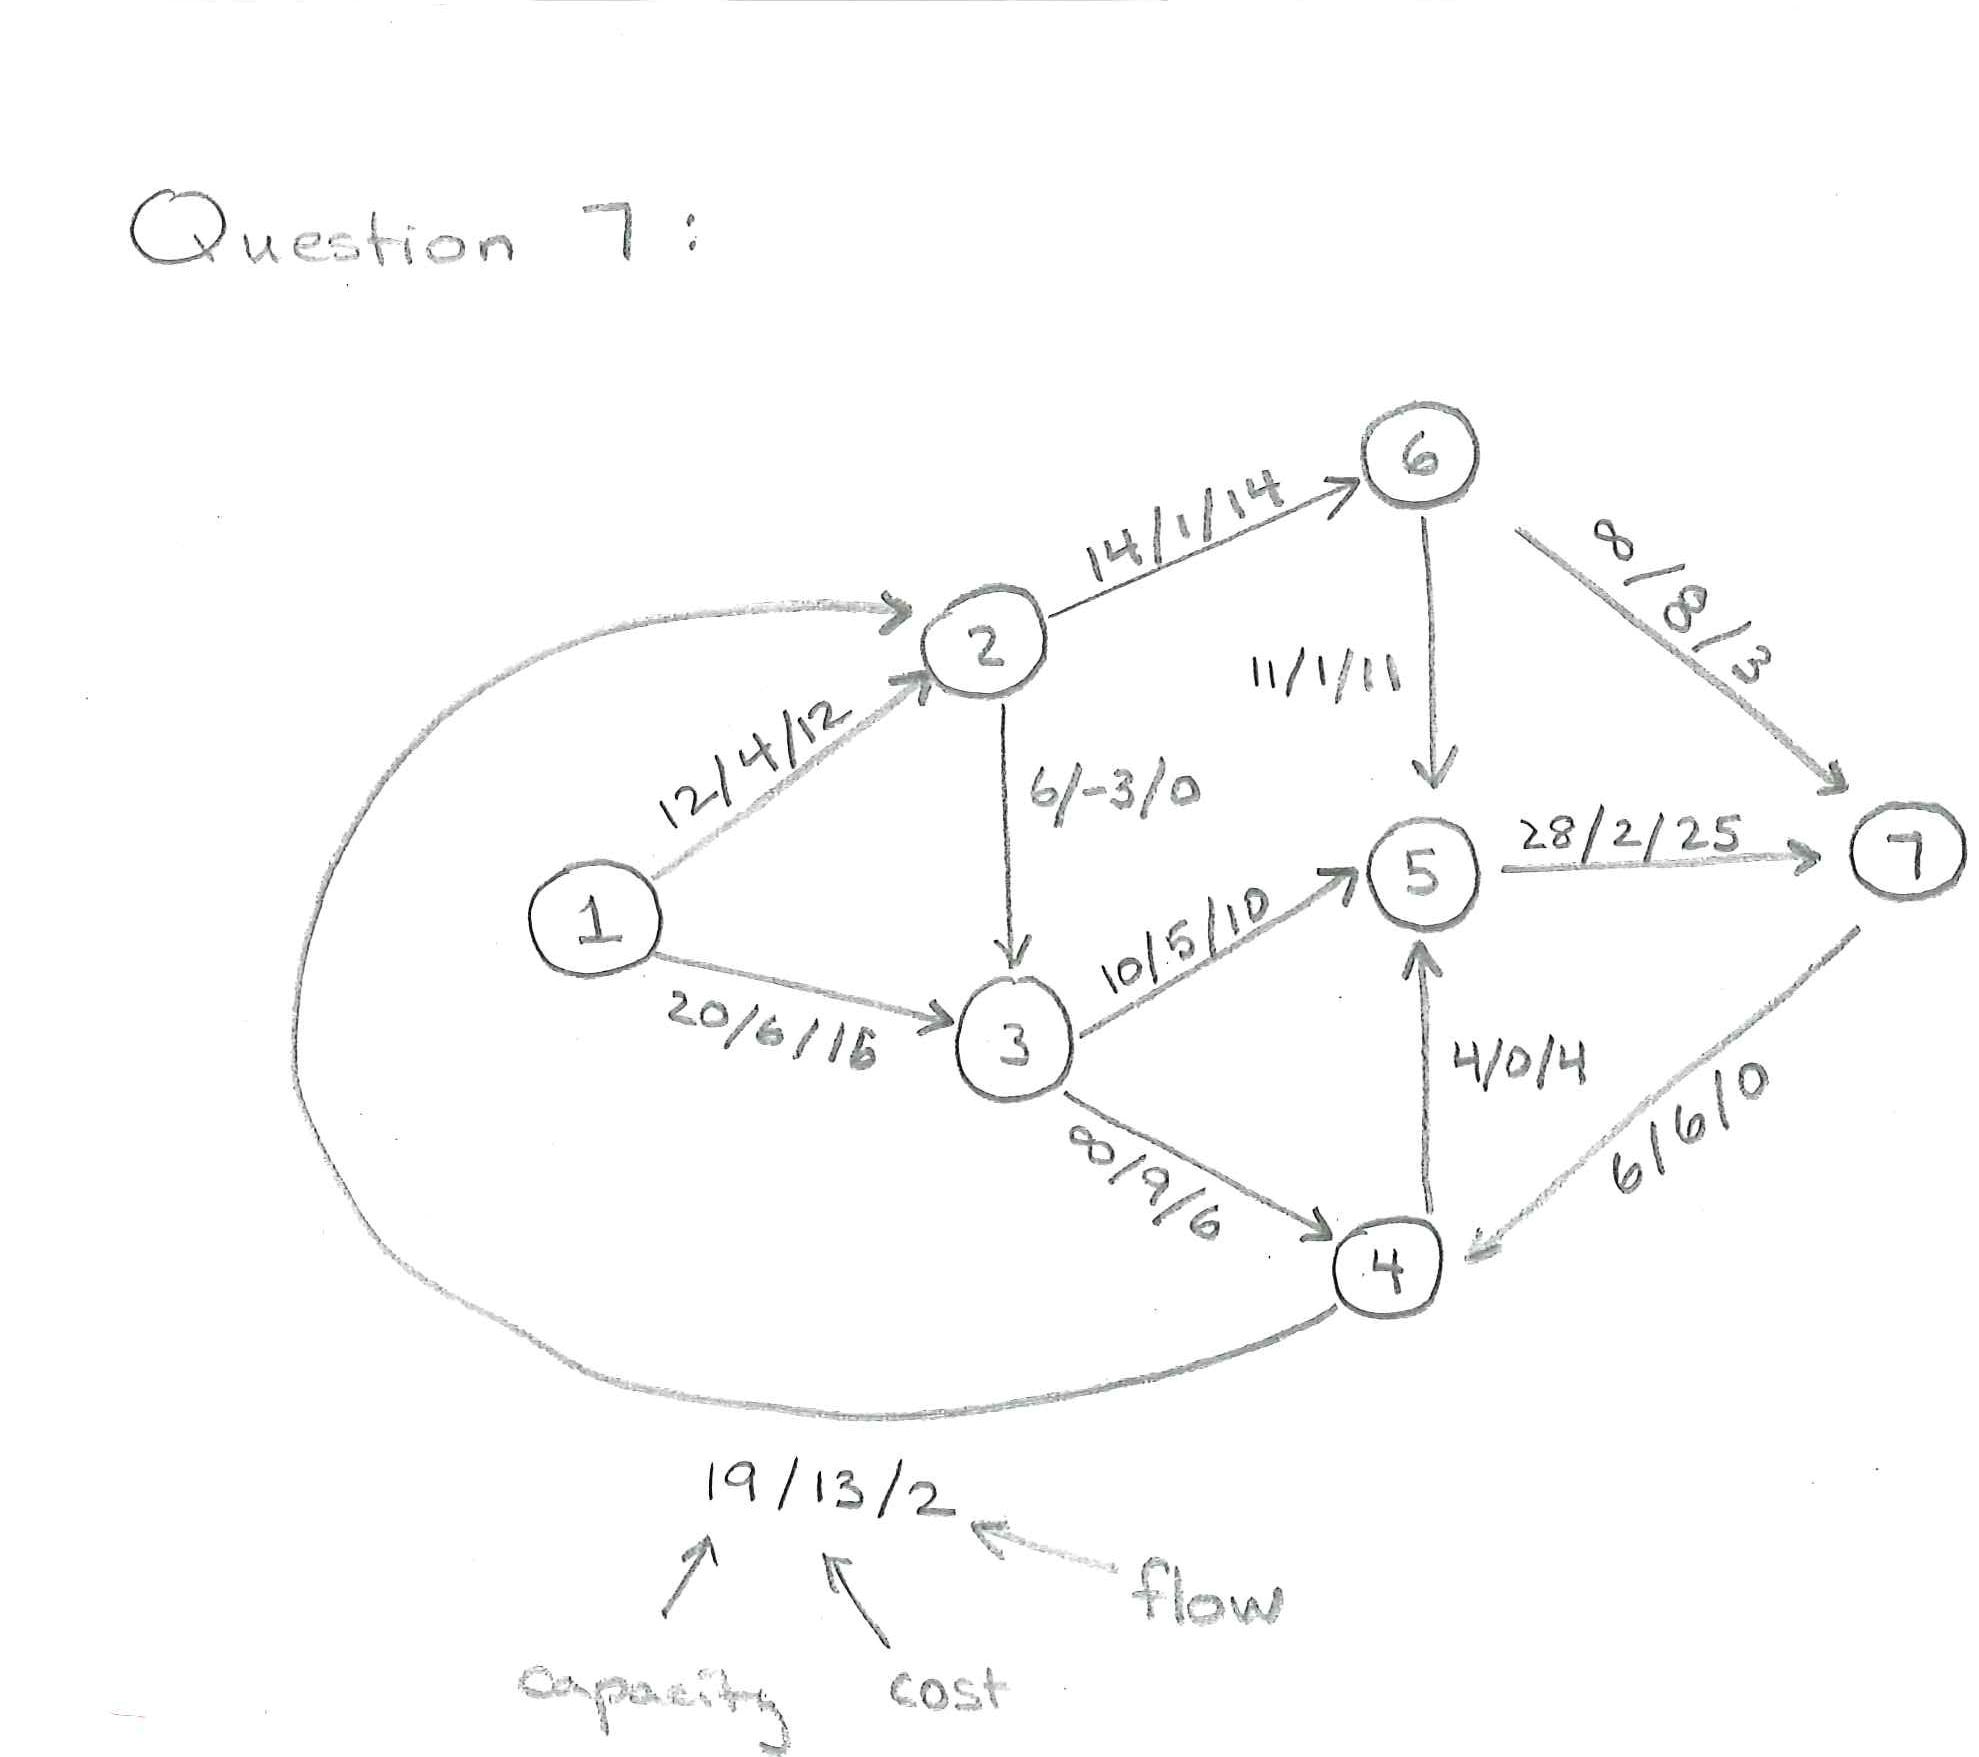 Question 7:
6
14/1/14
8/8/3
2
11/1/11
12/4/12
6/-3/0
28/2/25
7
5
1
10/5/10
20/6/16
3
4/0/4
6/6/0
8/9/6
4
19/13/2
flow
capacity
cost